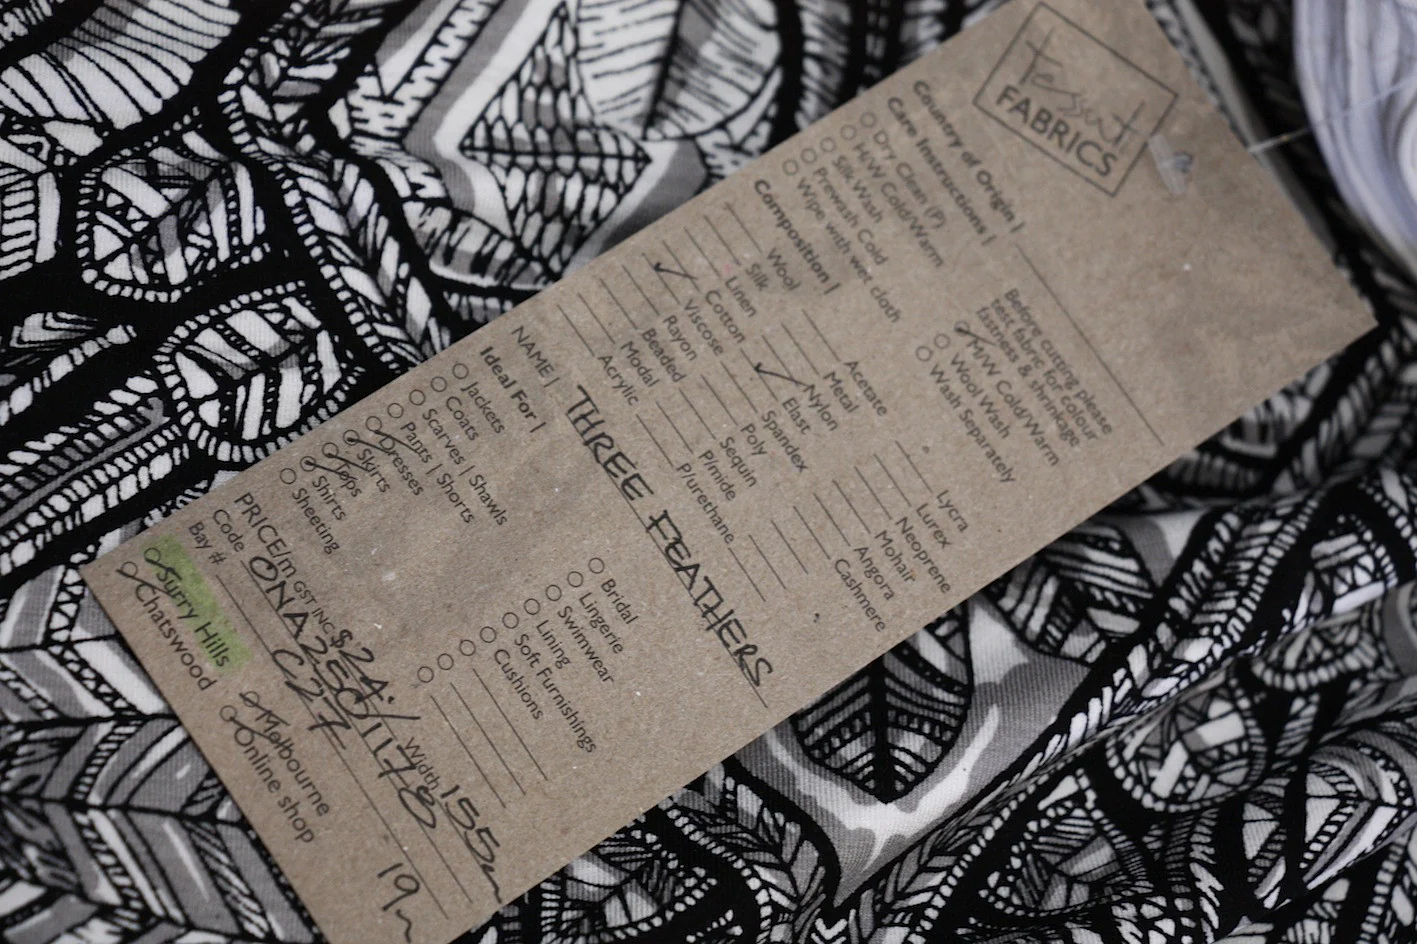 Tessuti
FABRICS
Country of Origin |
Care Instructions |
Dry Clean (P)
H/W Cold/Warm
Silk Wash
Prewash Cold
Wipe with wet cloth
Before cutting please
test fabric for colour
fastness & shrinkage
M/W Cold/Warm
Wool Wash
Wash Separately
Composition |
Wool
Silk
Linen
Cotton
Viscose
Rayon
Beaded
Modal
Acrylic
Acetate
Metal
Nylon
Elast
Spandex
Poly
Sequin
P/mide
P/urethane
Lycra
Lurex
Neoprene
Mohair
Angora
Cashmere
NAME | THREE FEATHERS
Ideal For |
Jackets
Coats
Scarves | Shawls
Pants | Shorts
Dresses
Skirts
Tops
Shirts
Sheeting
Bridal
Lingerie
Swimwear
Lining
Soft Furnishings
Cushions
PRICE/m GST INC $24.- Width 155cm
Code ONA2ECI1178
Bay # C27
19m
Surry Hills
Chatswood
Melbourne
Online shop